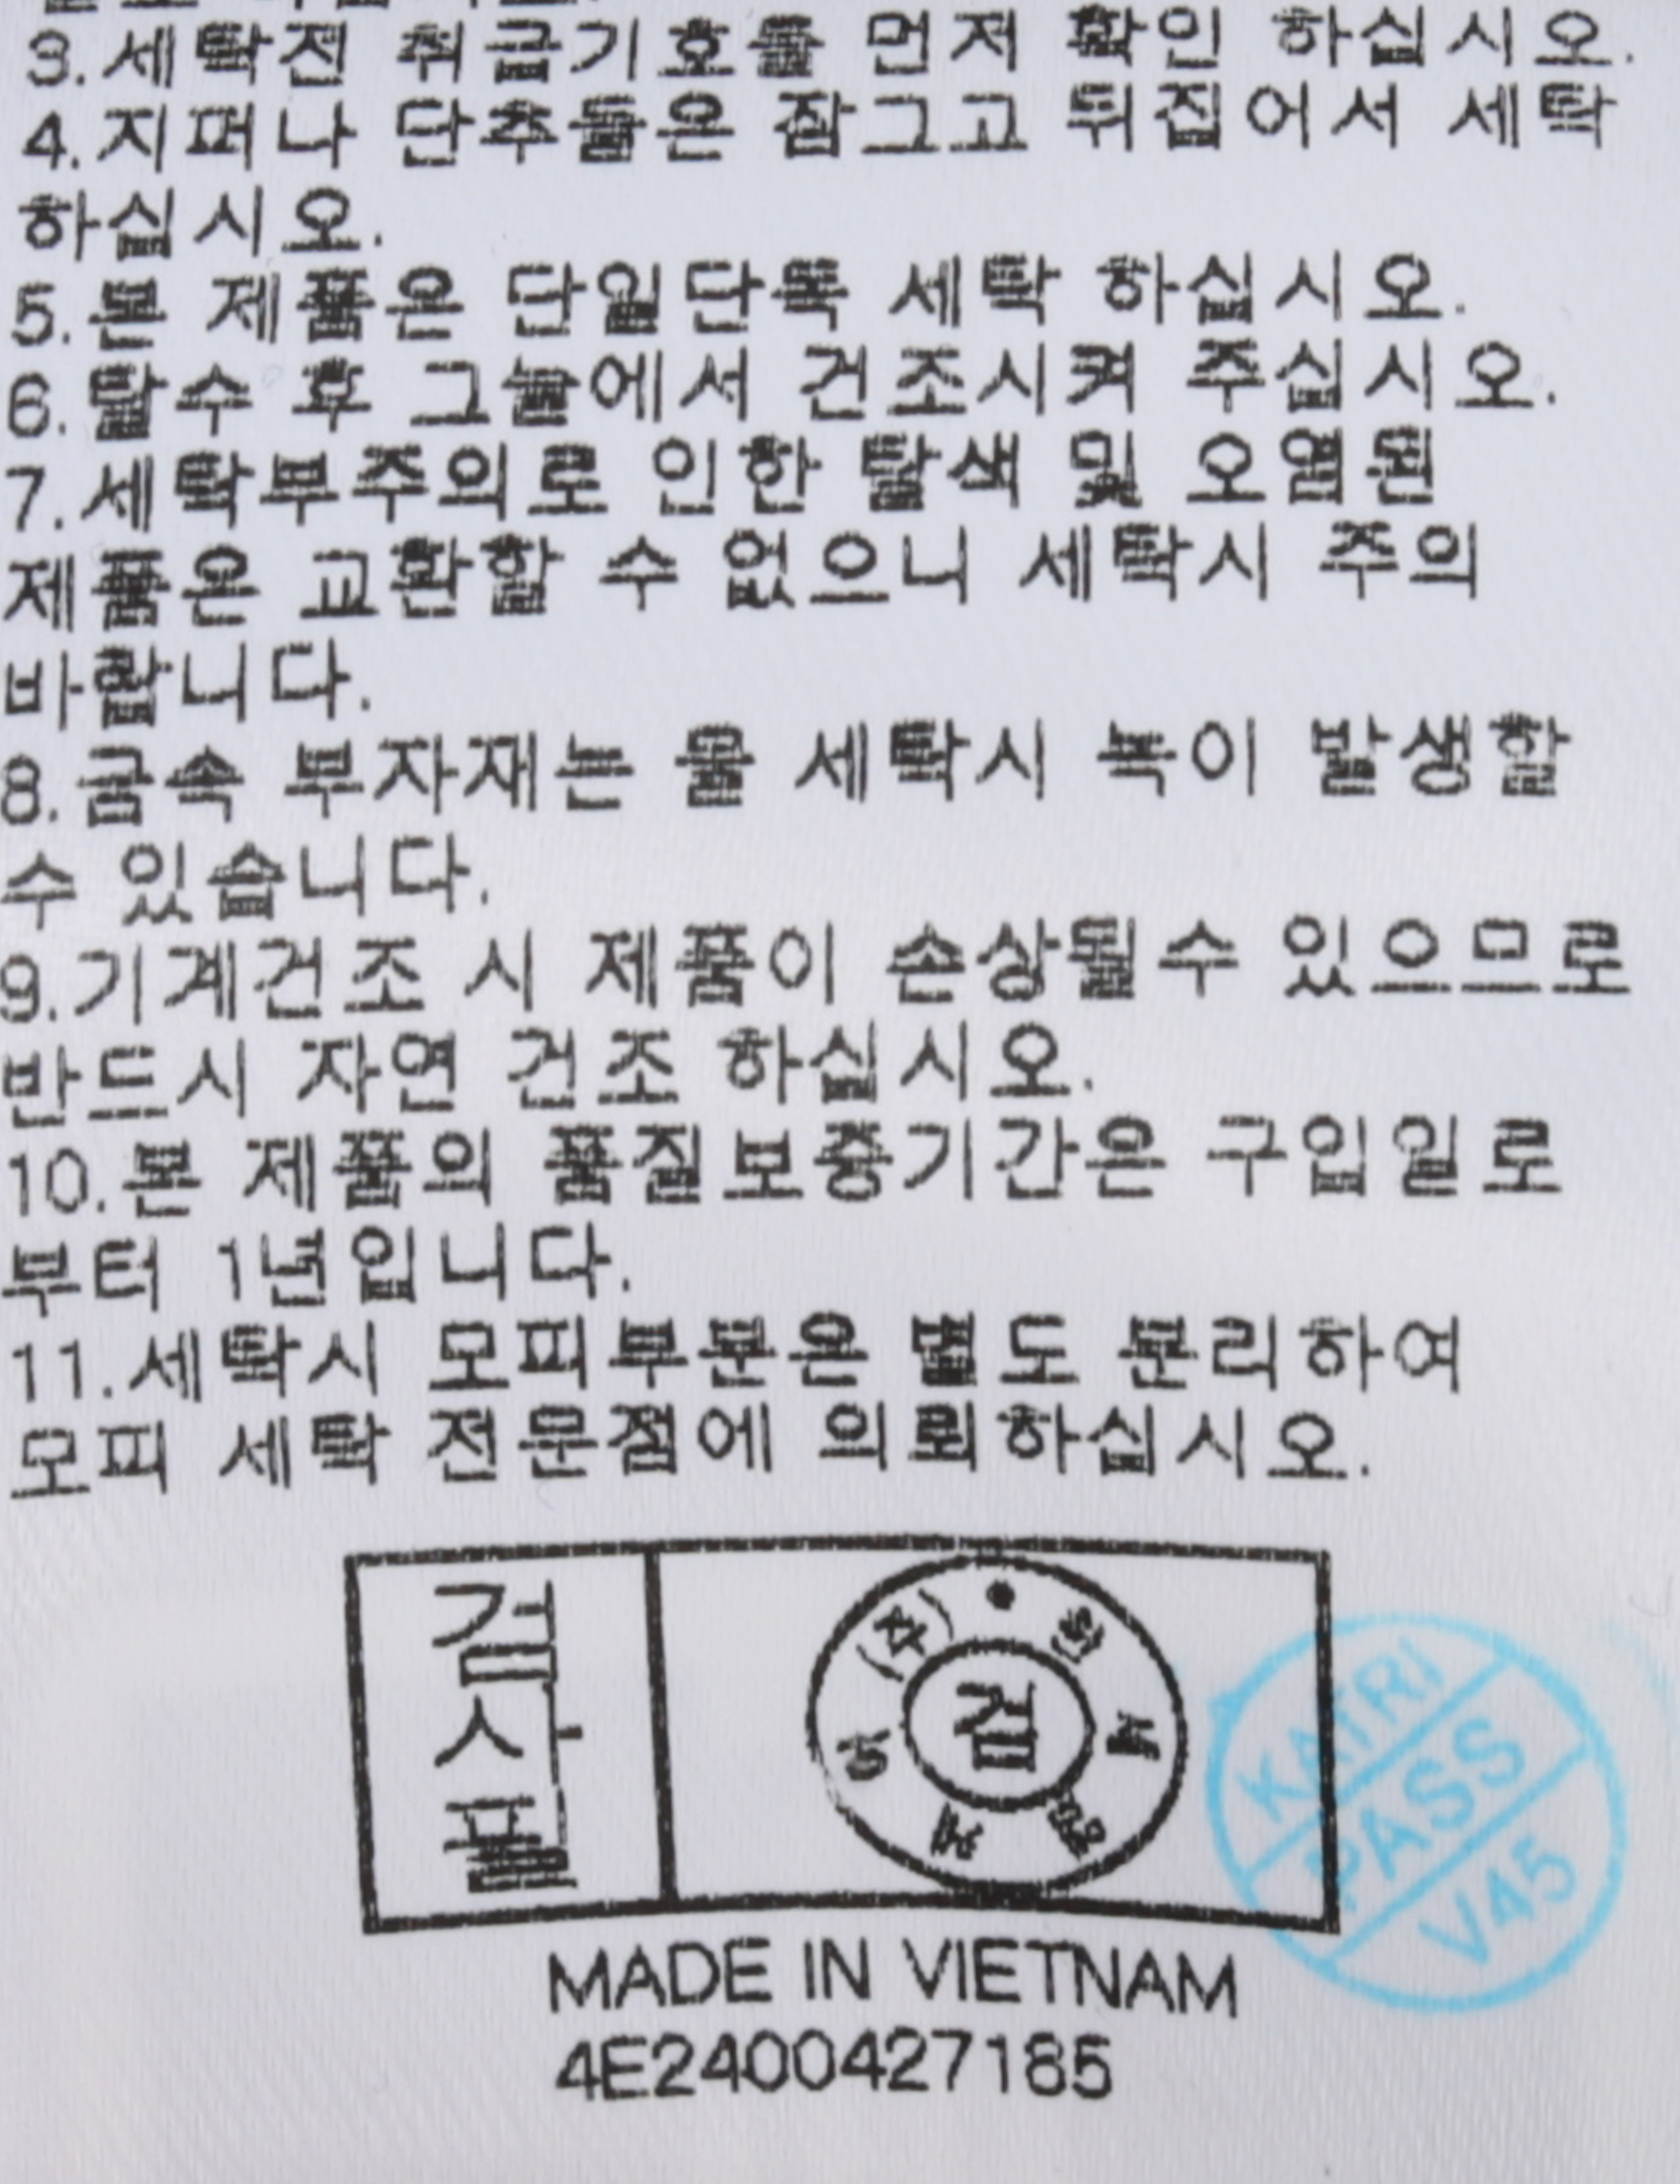 3.세탁전 취급기호를 먼저 확인 하십시오.
4.지퍼나 단추들은 잠그고 뒤집어서 세탁
하십시오.
5.본 제품은 단일단독 세탁 하십시오.
6.탈수 후 그늘에서 건조시켜 주십시오.
7.세탁부주의로 인한 탈색 및 오염된
제품은 교환할 수 없으니 세탁시 주의
바랍니다.
8.금속 부자재는 물 세탁시 녹이 발생할
수 있습니다.
9.기계건조 시 제품이 손상될수 있으므로
반드시 자연 건조 하십시오.
10.본 제품의 품질보증기간은 구입일로
부터 1년입니다.
11.세탁시 모피부분은 별도 분리하여
모피 세탁 전문점에 의뢰하십시오.
검사필
(주)
검
KATRI
PASS
V45
MADE IN VIETNAM
4E2400427185